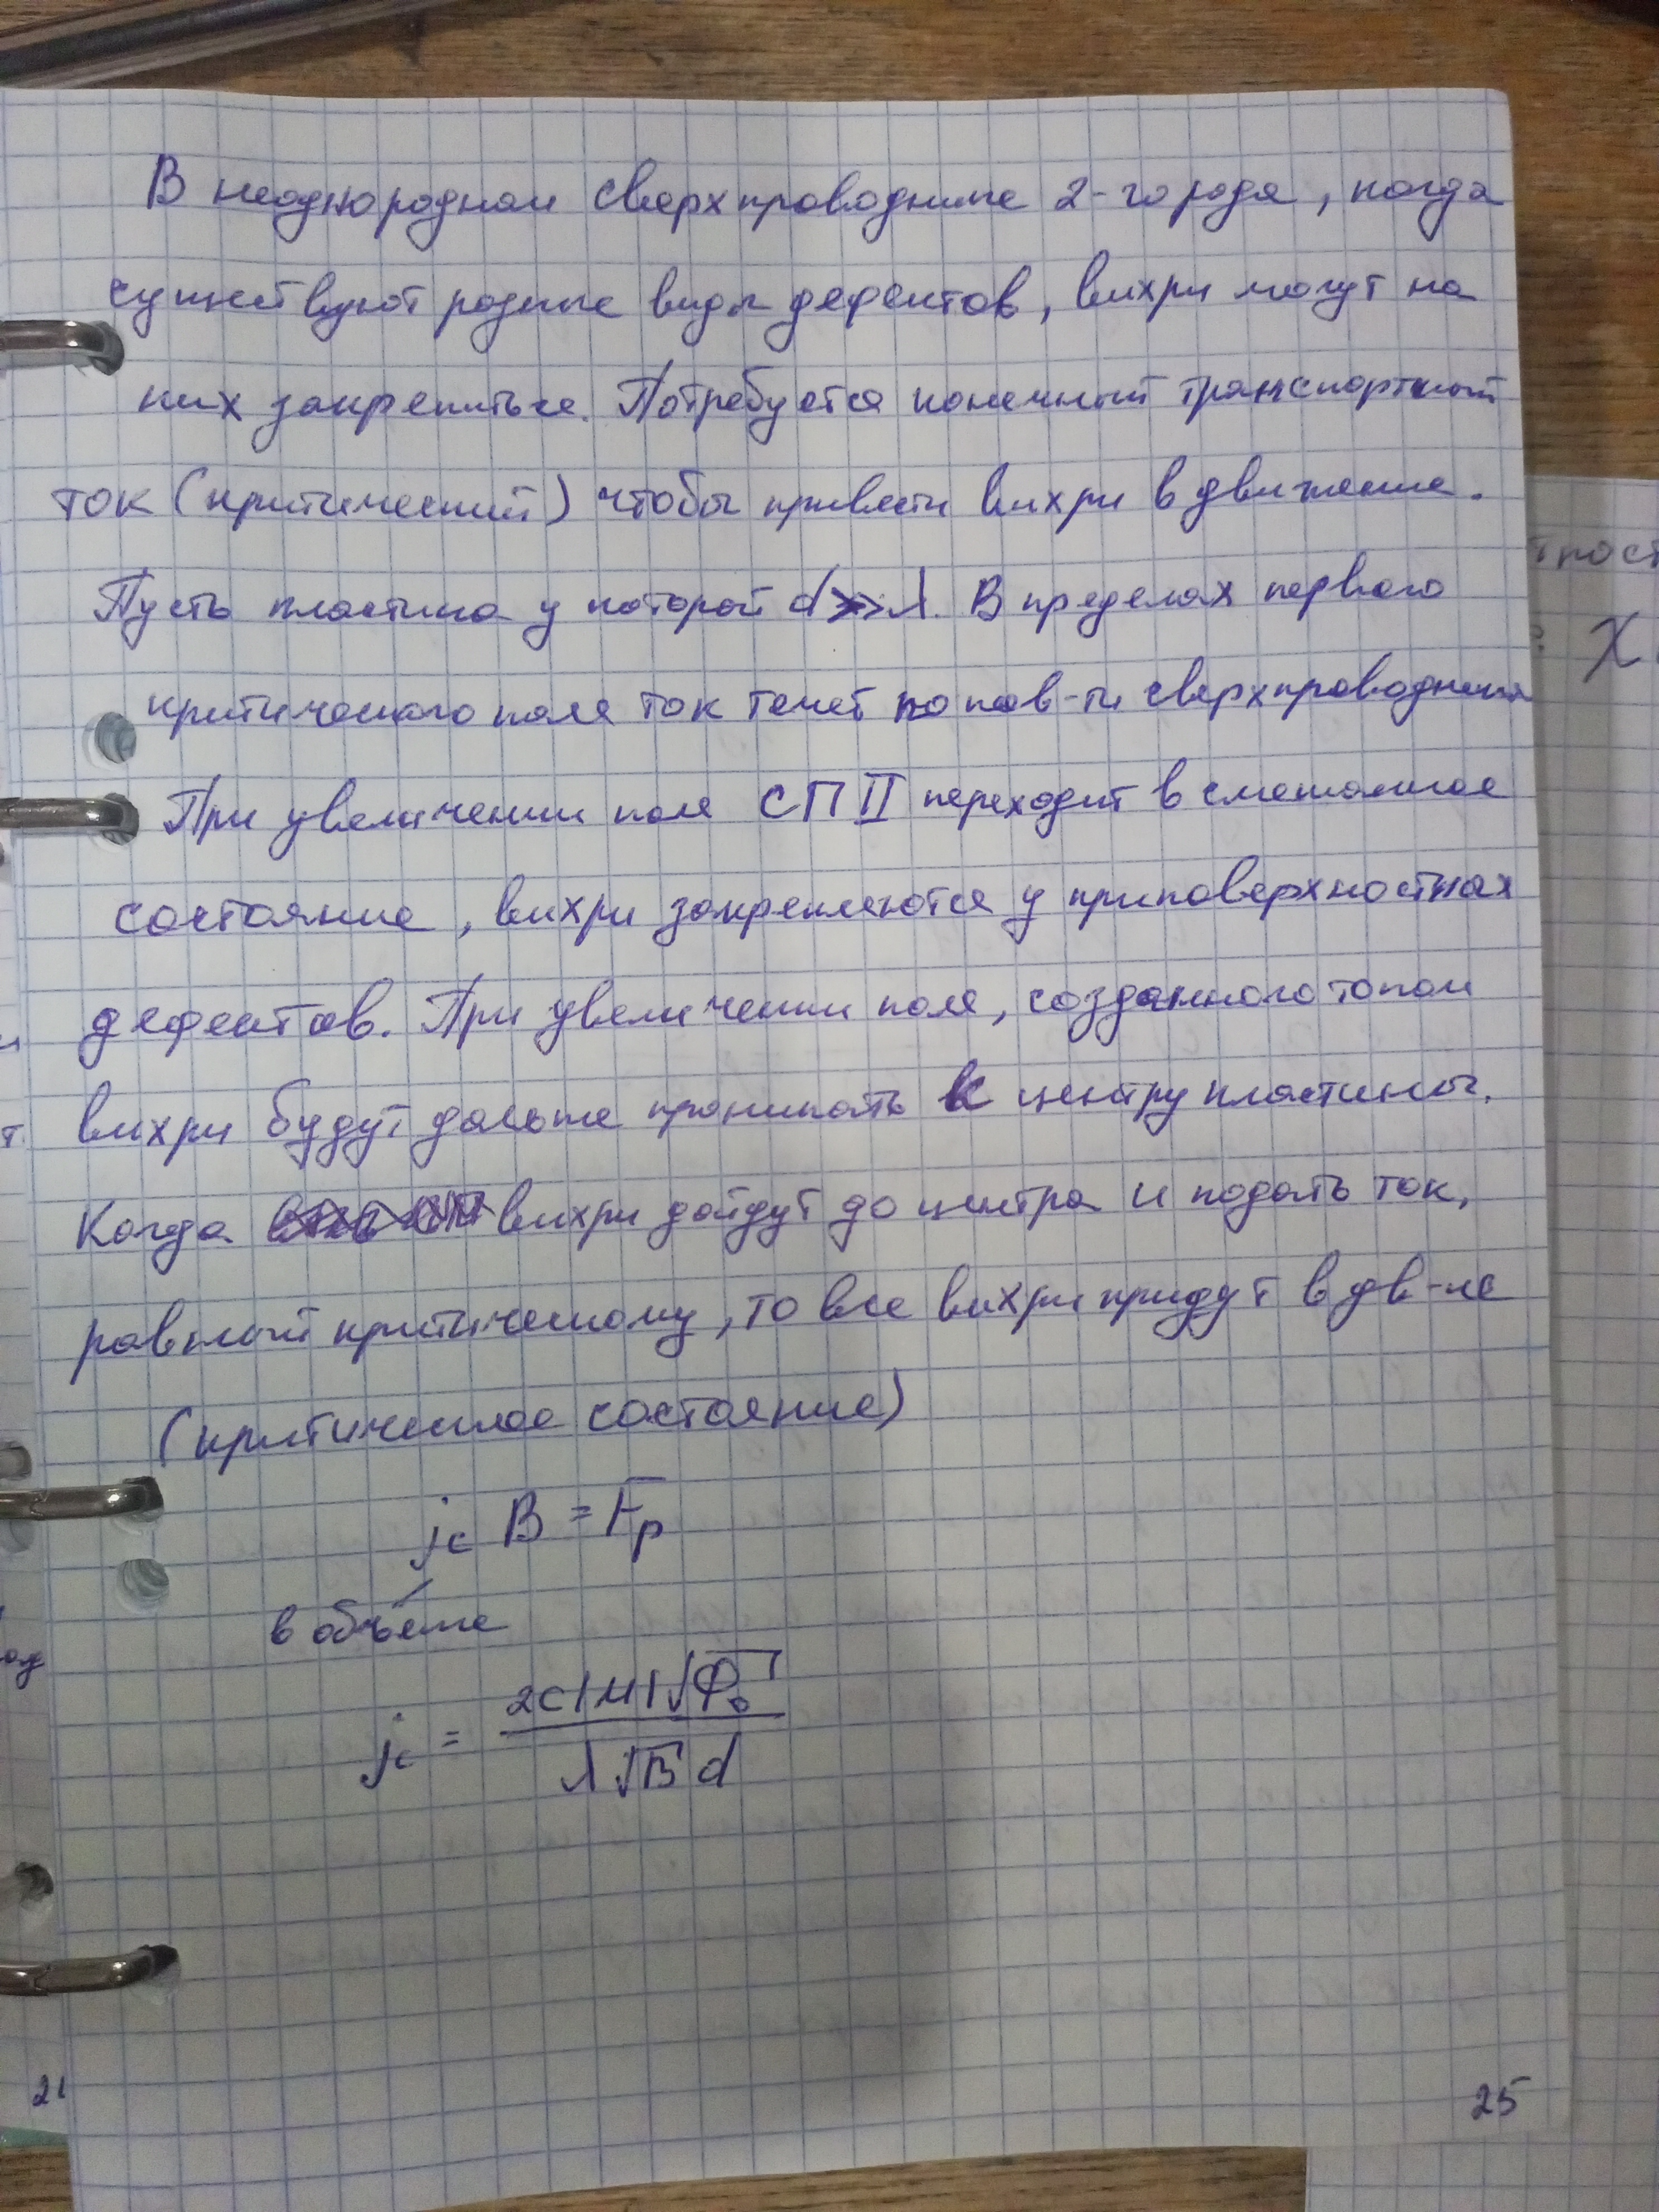 В неоднородном сверхпроводнике 2-го рода, когда
существуют разные виды дефектов, вихри могут на
них закрепиться. Потребуется конечный транспортный
ток (критический) чтобы привести вихри в движение.
Пусть пластина у которой d>>λ. В пределах первого
критического поля ток течет по пов-ти сверхпроводника
При увеличении поля СП II переходит в смешанное
состояние, вихри закрепляются у приповерхностных
дефектов. При увеличении поля, созданного током
вихри будут дальше проникать к центру пластины.
Когда вихри дойдут до центра и подать ток,
равный критическому, то все вихри придут в дв-ие
(критическое состояние)
jc B = Fp
в объёме
jc = 2c|M|√Φ₀ / λ√B d
25
21
пост
X